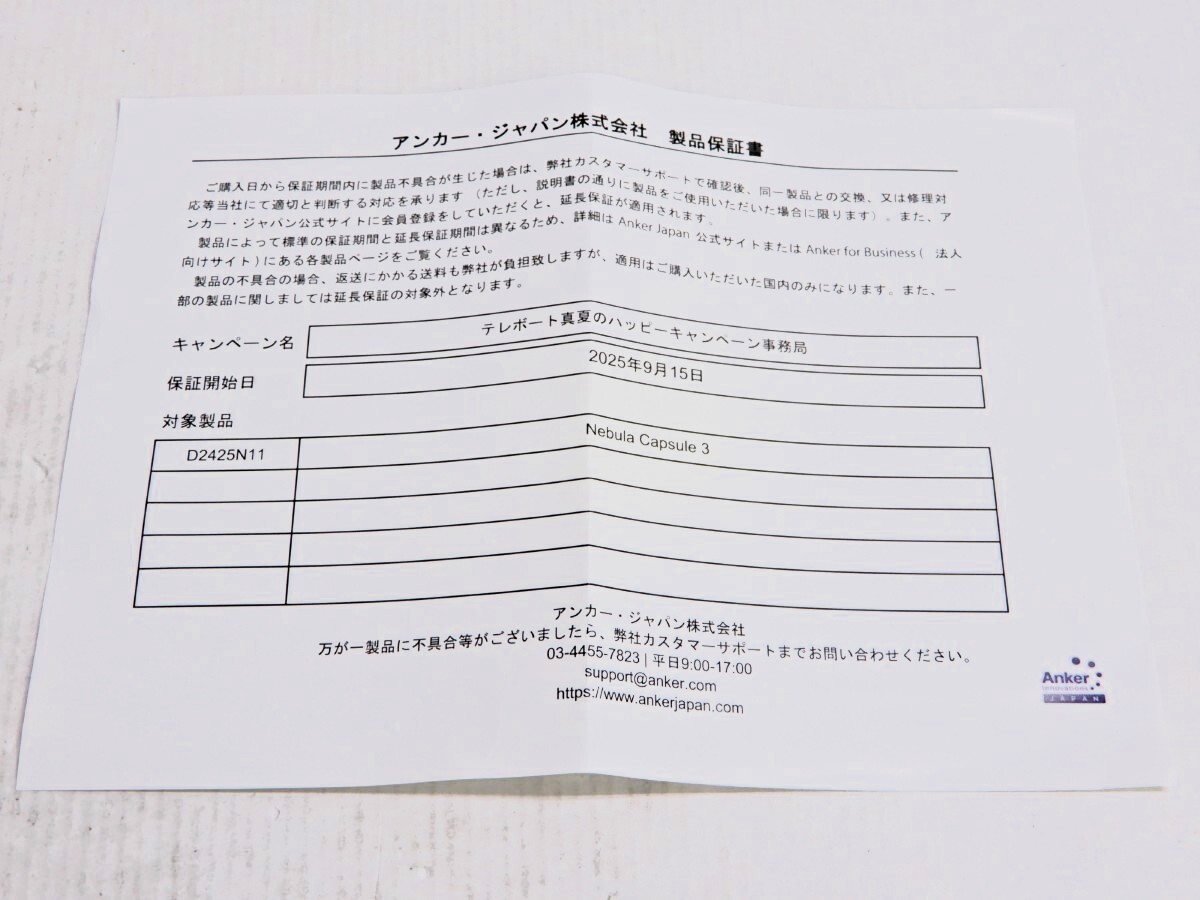 アンカー・ジャパン株式会社　製品保証書
ご購入日から保証期間内に製品不具合が生じた場合は、弊社カスタマーサポートで確認後、同一製品との交換、又は修理対
応等当社にて適切と判断する対応を承ります（ただし、説明書の通りに製品をご使用いただいた場合に限ります）。また、ア
ンカー・ジャパン公式サイトに会員登録をしていただくと、延長保証が適用されます。
製品によって標準の保証期間と延長保証期間は異なるため、詳細は Anker Japan 公式サイトまたは Anker for Business ( 法人
向けサイト ) にある各製品ページをご覧ください。
製品の不具合の場合、返送にかかる送料も弊社が負担致しますが、適用はご購入いただいた国内のみになります。また、一
部の製品に関しましては延長保証の対象外となります。
キャンペーン名 テレボート真夏のハッピーキャンペーン事務局
保証開始日 2025年9月15日
対象製品
D2425N11 Nebula Capsule 3
アンカー・ジャパン株式会社
万が一製品に不具合等がございましたら、弊社カスタマーサポートまでお問い合わせください。
03-4455-7823 | 平日9:00-17:00
support@anker.com
https://www.ankerjapan.com
Anker
JAPAN